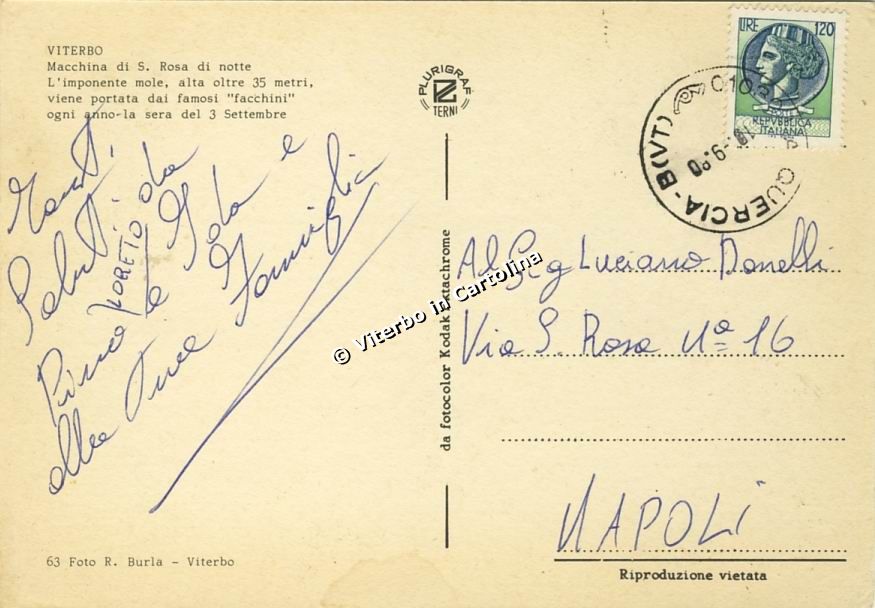 VITERBO
Macchina di S. Rosa di notte
L'imponente mole, alta oltre 35 metri,
viene portata dai famosi "facchini"
ogni anno la sera del 3 Settembre
PLURIGRAF
TERNI
LIRE 120
REPVBBLICA
ITALIANA
QUERCIA - B(VT)
Saluti da
Pino LORETO e Ida e
alla Tua Famiglia
Al Luciano Donelli
Via S. Rosa Nº 16
NAPOLI
da fotocolor Kodak Ektachrome
© Viterbo in Cartolina
63 Foto R. Burla - Viterbo
Riproduzione vietata